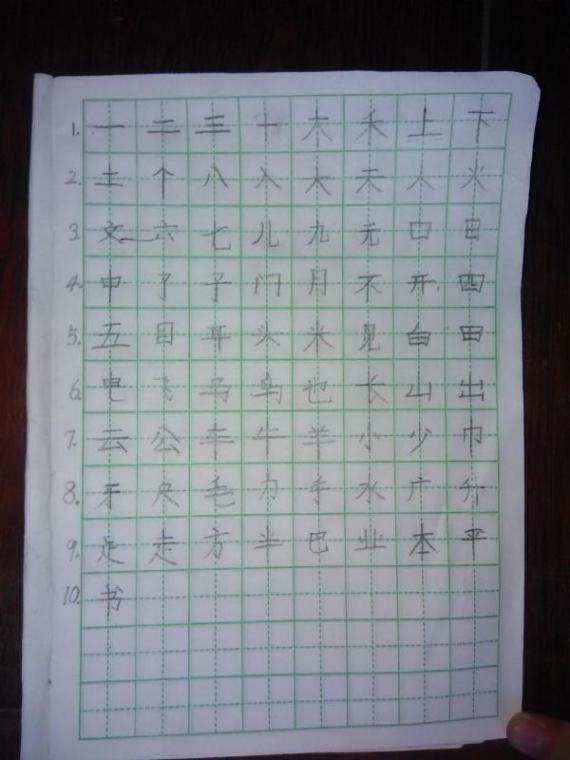 1. 一 二 三 十 木 禾 上 下
2. 土 个 八 入 大 天 人 火
3. 文 六 七 儿 九 无 口 日
4. 中 了 子 门 月 不 开 四
5. 五 目 耳 头 米 见 白 田
6. 电 飞 马 鸟 也 长 山 出
7. 云 公 车 牛 羊 小 少 巾
8. 牙 尺 毛 力 手 水 广 升
9. 足 走 方 半 巴 业 本 平
10. 书